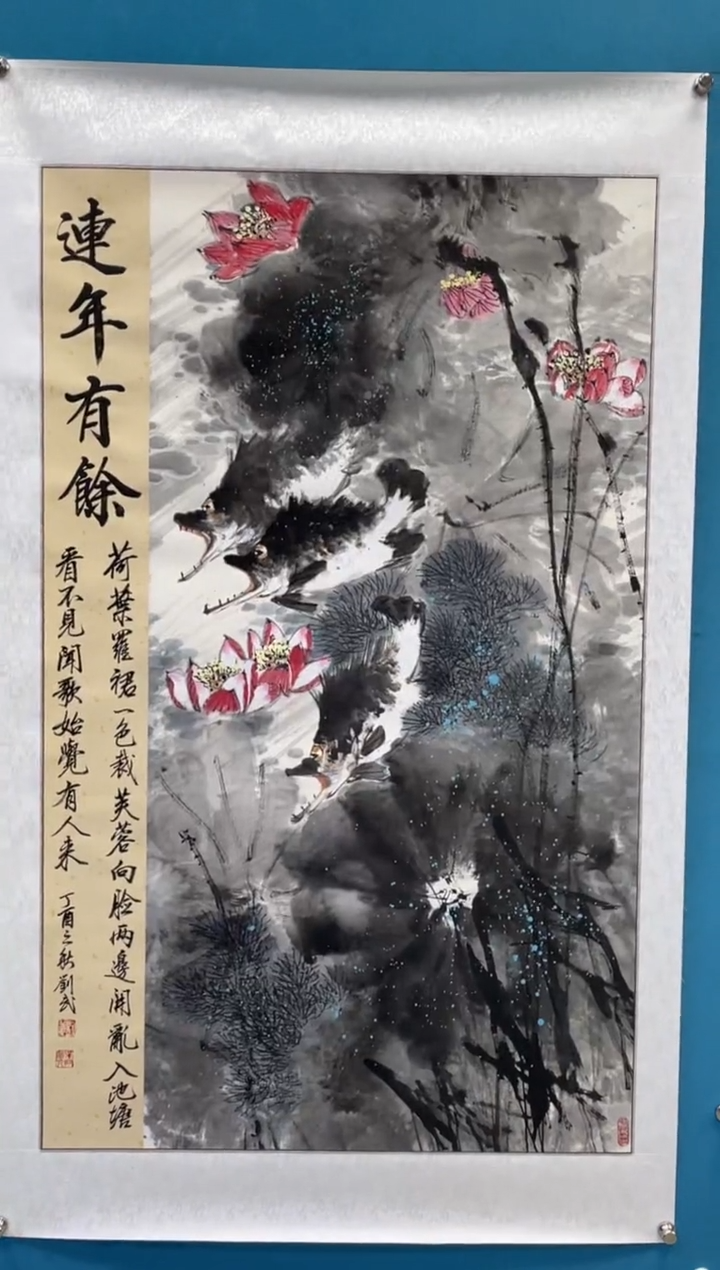 連年有餘
荷葉羅裙一色裁芙蓉向臉兩邊開亂入池塘
看不見聞歌始覺有人来
丁酉之秋劉武